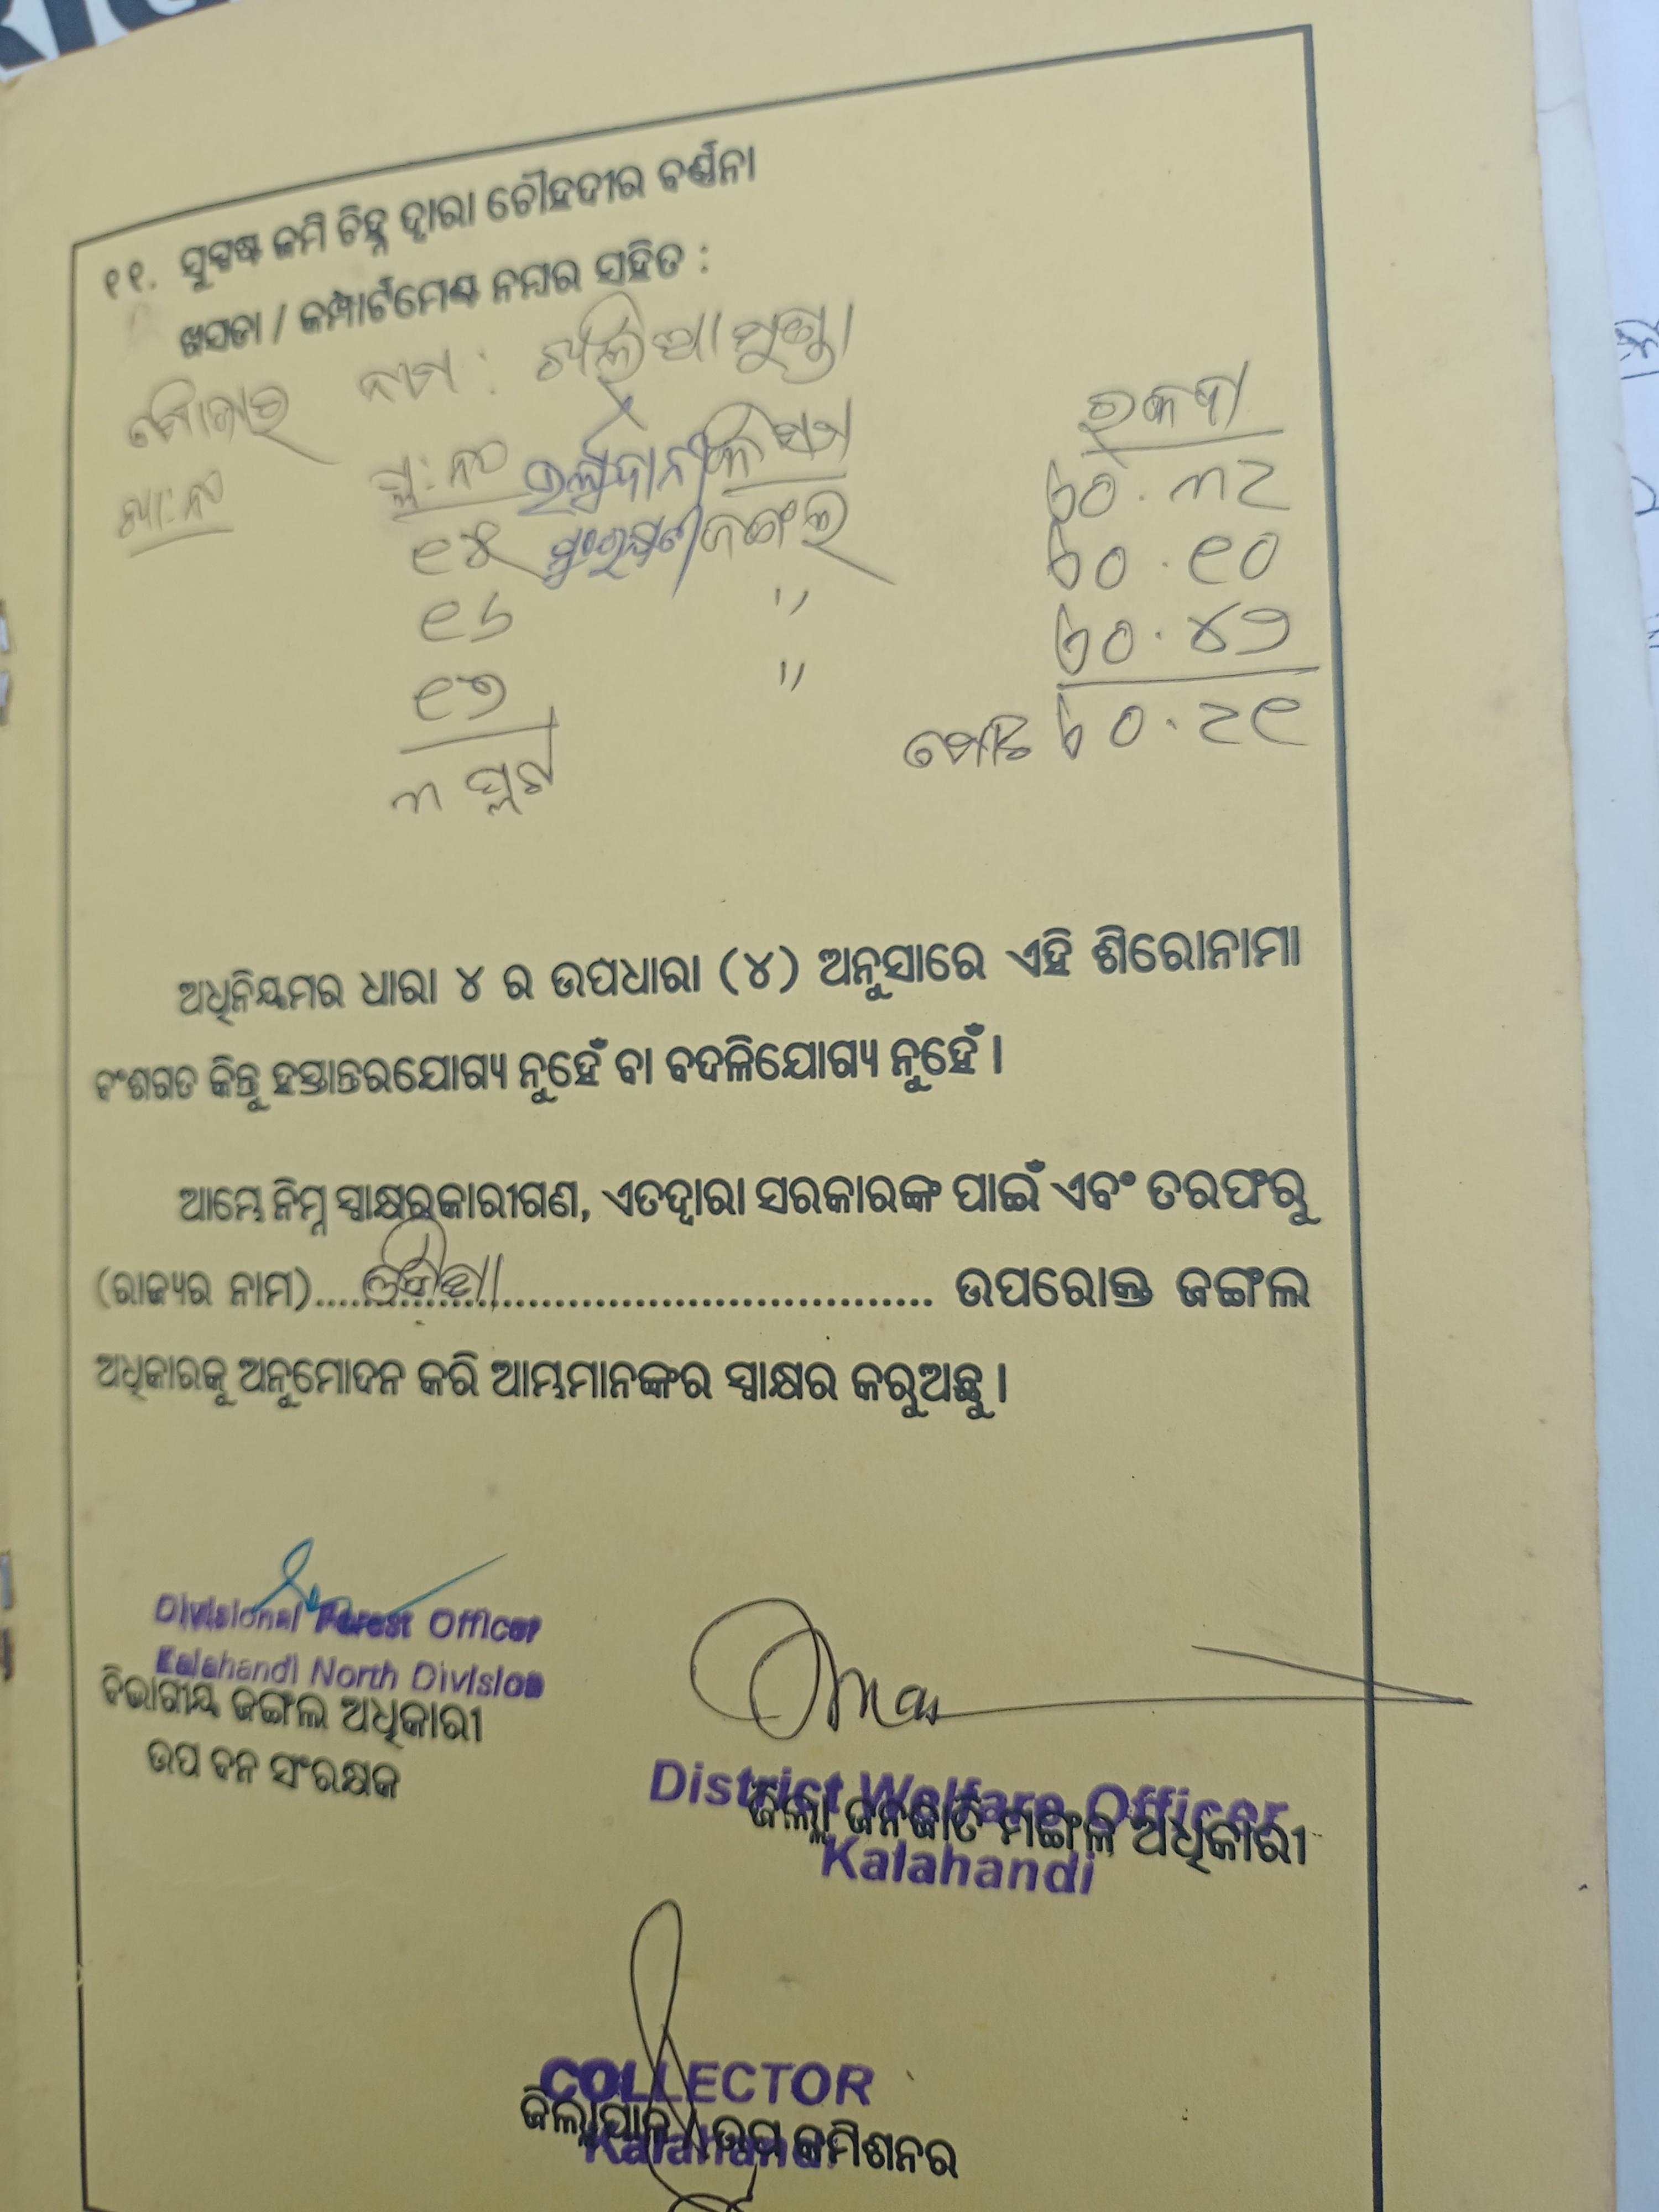 ୧୧. ସୁସ୍ପଷ୍ଟ ଜମି ଚିହ୍ନ ଦ୍ୱାରା ଚୌହଦୀର ବର୍ଣ୍ଣନା
ଖସଡା / କମ୍ପାର୍ଟମେଣ୍ଟ ନମ୍ବର ସହିତ :
ମୌଜାର ନାମ :
ଖା:ନଂ ପ୍ଲ:ନଂ କିସମ ରକବା
୧୪ ସଂରକ୍ଷଣ ଜଙ୍ଗଲ
୧୬ "
୧୭ "
୩ ପ୍ଲଟ ମୋଟ
ଅଧିନିୟମର ଧାରା ୪ ର ଉପଧାରା (୪) ଅନୁସାରେ ଏହି ଶିରୋନାମା
ବଂଶଗତ କିନ୍ତୁ ହସ୍ତାନ୍ତରଯୋଗ୍ୟ ନୁହେଁ ବା ବଦଳିଯୋଗ୍ୟ ନୁହେଁ ।
ଆମ୍ଭେ ନିମ୍ନ ସ୍ୱାକ୍ଷରକାରୀଗଣ, ଏତଦ୍ୱାରା ସରକାରଙ୍କ ପାଇଁ ଏବଂ ତରଫରୁ
(ରାଜ୍ୟର ନାମ)....ଓଡ଼ିଶା.... ଉପରୋକ୍ତ ଜଙ୍ଗଲ
ଅଧିକାରକୁ ଅନୁମୋଦନ କରି ଆମ୍ଭମାନଙ୍କର ସ୍ୱାକ୍ଷର କରୁଅଛୁ ।
Divisional Forest Officer
Kalahandi North Division
ବିଭାଗୀୟ ଜଙ୍ଗଲ ଅଧିକାରୀ
ଉପ ବନ ସଂରକ୍ଷକ
District Welfare Officer
ଜିଲ୍ଲା ଜନଜାତି ମଙ୍ଗଳ ଅଧିକାରୀ
Kalahandi
COLLECTOR
ଜିଲ୍ଲାପାଳ / ଉପ କମିଶନର
Kalahandi